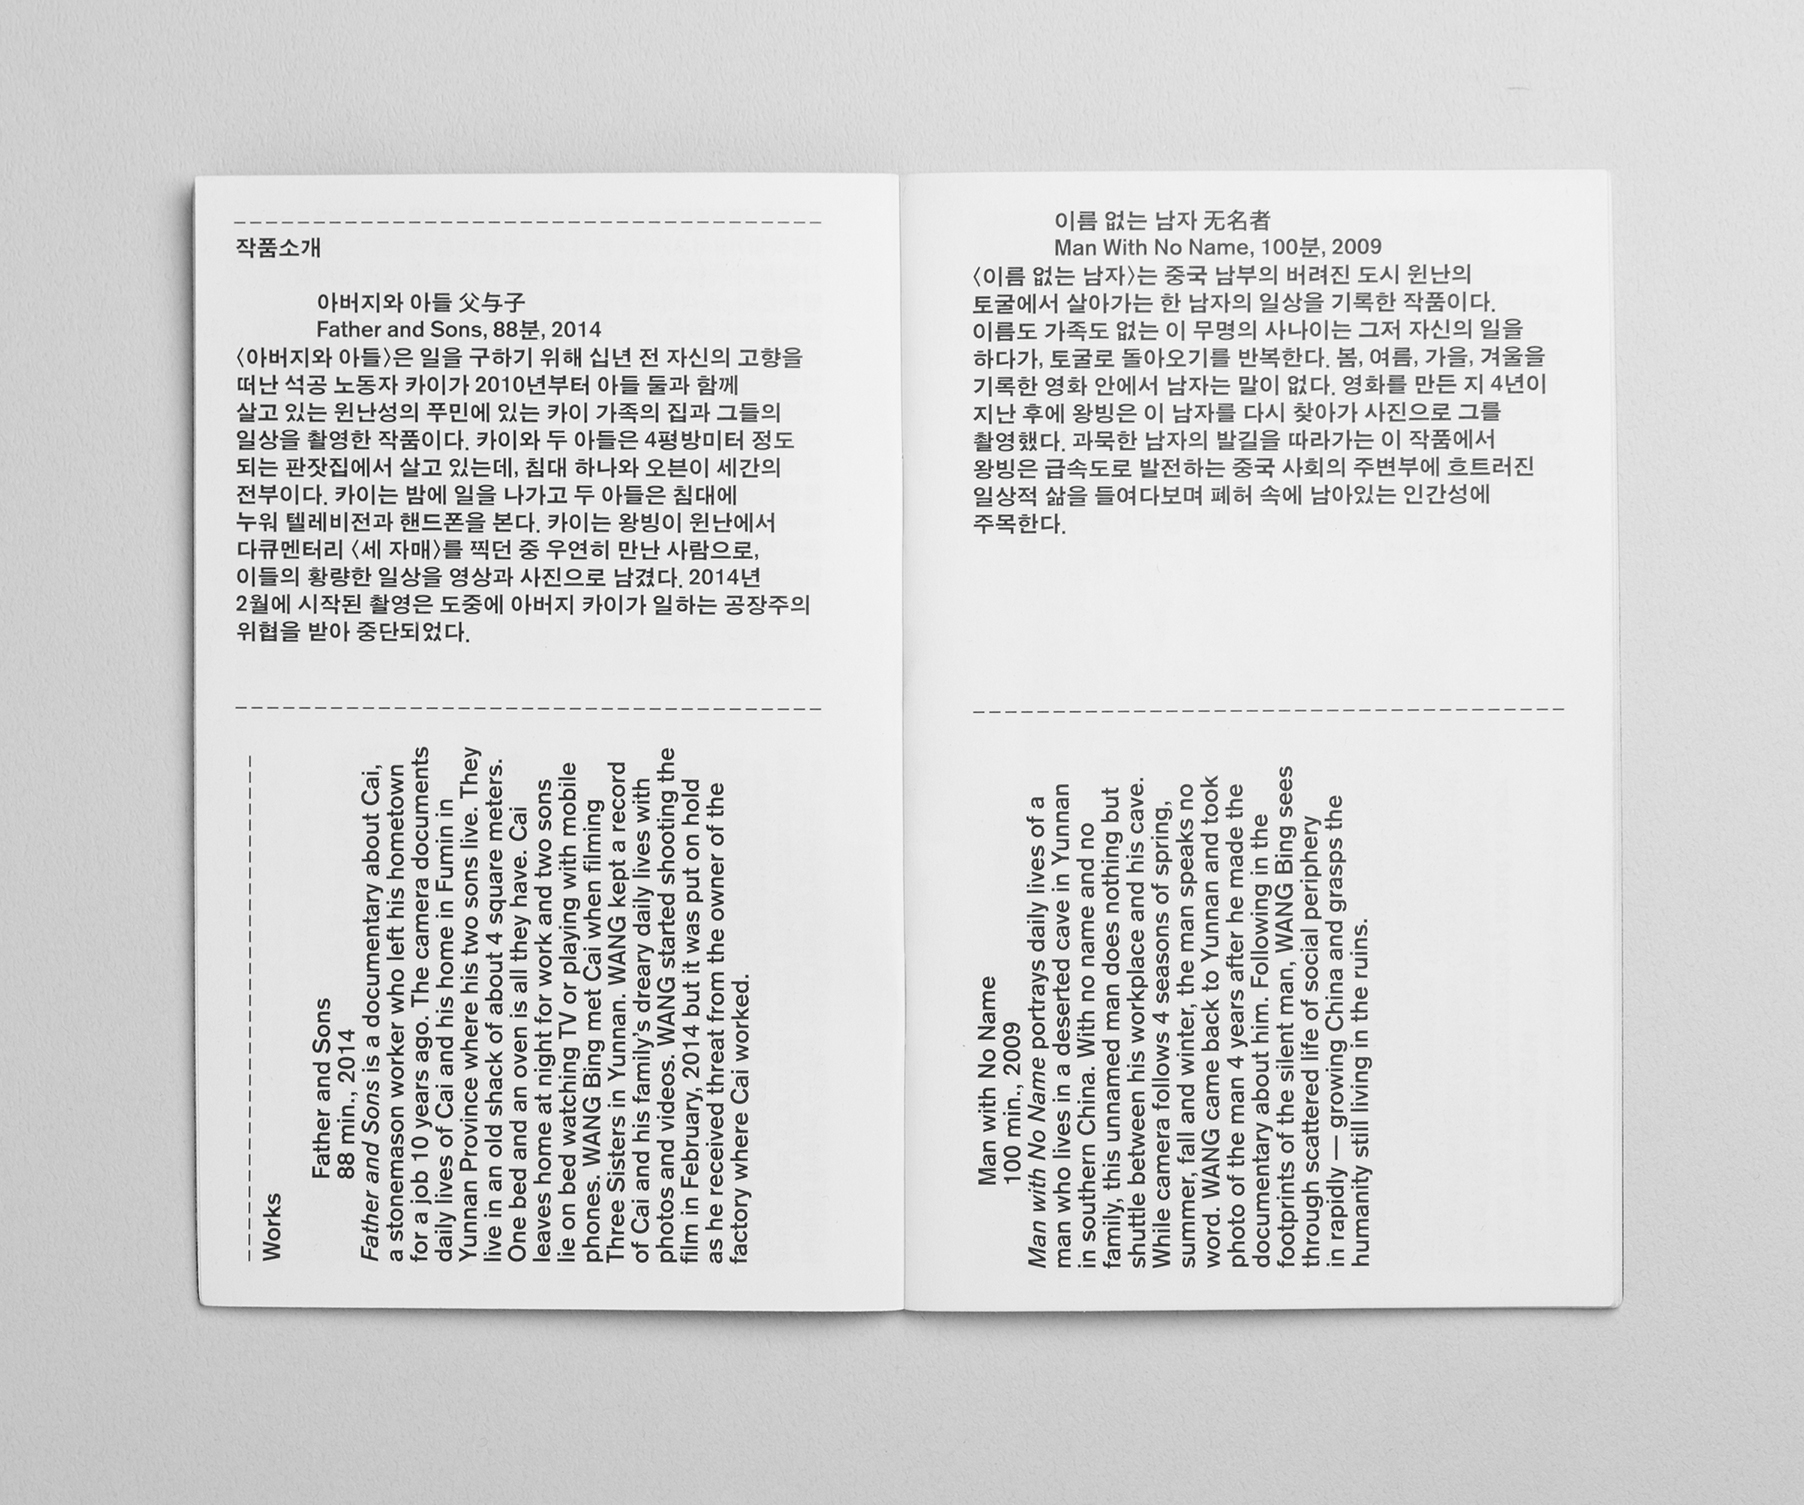 작품소개
아버지와 아들 父与子
Father and Sons, 88분, 2014
〈아버지와 아들〉은 일을 구하기 위해 십년 전 자신의 고향을
떠난 석공 노동자 카이가 2010년부터 아들 둘과 함께
살고 있는 윈난성의 푸민에 있는 카이 가족의 집과 그들의
일상을 촬영한 작품이다. 카이와 두 아들은 4평방미터 정도
되는 판잣집에서 살고 있는데, 침대 하나와 오븐이 세간의
전부이다. 카이는 밤에 일을 나가고 두 아들은 침대에
누워 텔레비전과 핸드폰을 본다. 카이는 왕빙이 윈난에서
다큐멘터리 〈세 자매〉를 찍던 중 우연히 만난 사람으로,
이들의 황량한 일상을 영상과 사진으로 남겼다. 2014년
2월에 시작된 촬영은 도중에 아버지 카이가 일하는 공장주의
위협을 받아 중단되었다.
Works
Father and Sons
88 min., 2014
Father and Sons is a documentary about Cai,
a stonemason worker who left his hometown
for a job 10 years ago. The camera documents
daily lives of Cai and his home in Fumin in
Yunnan Province where his two sons live. They
live in an old shack of about 4 square meters.
One bed and an oven is all they have. Cai
leaves home at night for work and two sons
lie on bed watching TV or playing with mobile
phones. WANG Bing met Cai when filming
Three Sisters in Yunnan. WANG kept a record
of Cai and his family's dreary daily lives with
photos and videos. WANG started shooting the
film in February, 2014 but it was put on hold
as he received threat from the owner of the
factory where Cai worked.
이름 없는 남자 无名者
Man With No Name, 100분, 2009
〈이름 없는 남자〉는 중국 남부의 버려진 도시 윈난의
토굴에서 살아가는 한 남자의 일상을 기록한 작품이다.
이름도 가족도 없는 이 무명의 사나이는 그저 자신의 일을
하다가, 토굴로 돌아오기를 반복한다. 봄, 여름, 가을, 겨울을
기록한 영화 안에서 남자는 말이 없다. 영화를 만든 지 4년이
지난 후에 왕빙은 이 남자를 다시 찾아가 사진으로 그를
촬영했다. 과묵한 남자의 발길을 따라가는 이 작품에서
왕빙은 급속도로 발전하는 중국 사회의 주변부에 흐트러진
일상적 삶을 들여다보며 폐허 속에 남아있는 인간성에
주목한다.
Man with No Name
100 min., 2009
Man with No Name portrays daily lives of a
man who lives in a deserted cave in Yunnan
in southern China. With no name and no
family, this unnamed man does nothing but
shuttle between his workplace and his cave.
While camera follows 4 seasons of spring,
summer, fall and winter, the man speaks no
word. WANG came back to Yunnan and took
photo of the man 4 years after he made the
documentary about him. Following in the
footprints of the silent man, WANG Bing sees
through scattered life of social periphery
in rapidly — growing China and grasps the
humanity still living in the ruins.